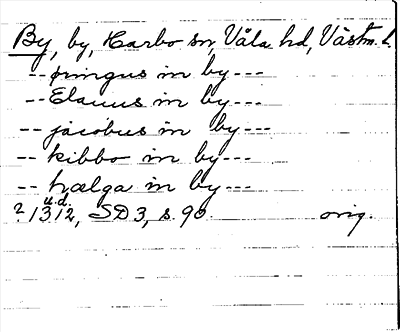 By, by, Harbo sn, Våla hd, Västm. l.
-- þringus in by ---
-- Elauus in by ---
-- jacobus in by ---
-- kibbo in by ---
-- hælga in by ---
u.d.
? 1312, SD 3, s. 90. orig.